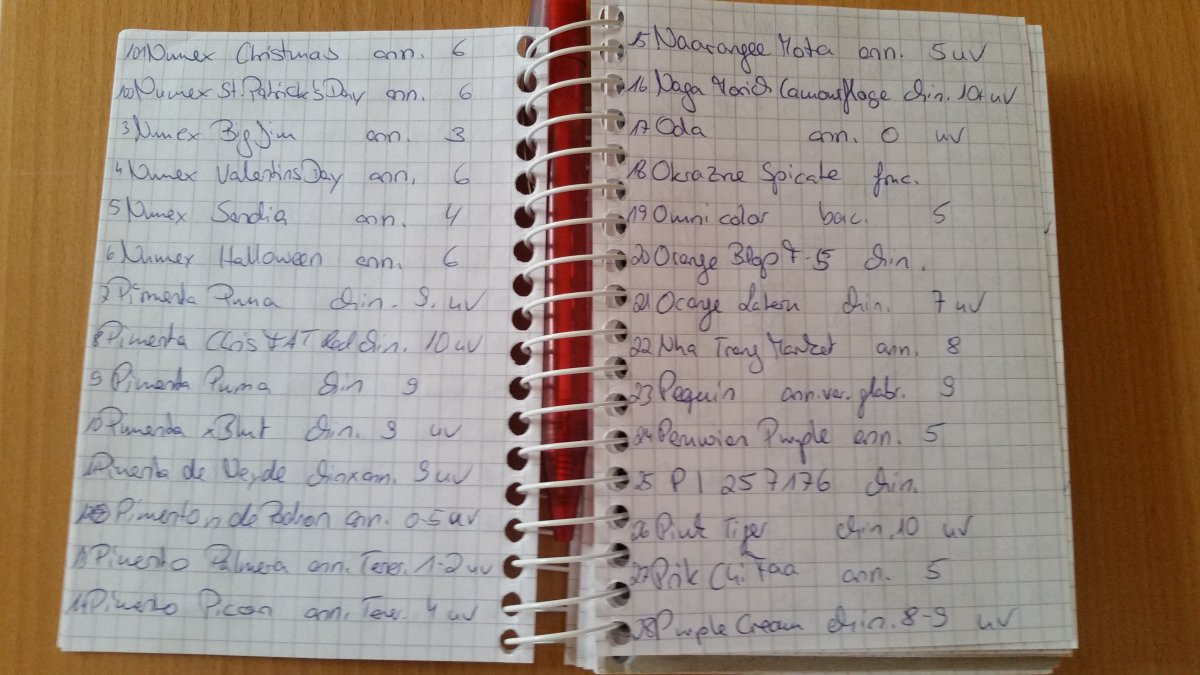 101 Numex Christmas ann. 6
102 Numex St. Patrick's Day ann. 6
3 Numex Big Jim ann. 3
4 Numex Valentins Day ann. 6
5 Numex Sandia ann. 4
6 Numex Halloween ann. 6
7 Pimenta Puna chin. 9. uv
8 Pimenta Chris FAT Red chin. 10 uv
9 Pimenta Puma chin 9
10 Pimenta x Bhut chin. 9 uv
11 Pimenta de Verde chinxann. 9 uv
12 Pimenton de Padron ann. 0-5 uv
13 Pimento Palmera ann. Tener. 1-2 uv
14 Pimento Picon ann. Tener. 4 uv
15 Naarangee Mota ann. 5 uv
16 Naga Morich Camouflage chin. 10+ uv
17 Oda ann. 0 uv
18 Okrazne Spicate fruc.
19 Omnicolor bac. 5
20 Orange Blop F-5 chin.
21 Orange Latern chin. 7 uv
22 Nha Trang Market ann. 8
23 Pequin ann. var. glabr. 9
24 Peruvian Purple ann. 5
25 PI 257176 chin.
26 Pink Tiger chin. 10 uv
27 Prik Chi Faa ann. 5
28 Purple Cream chin. 8-9 uv